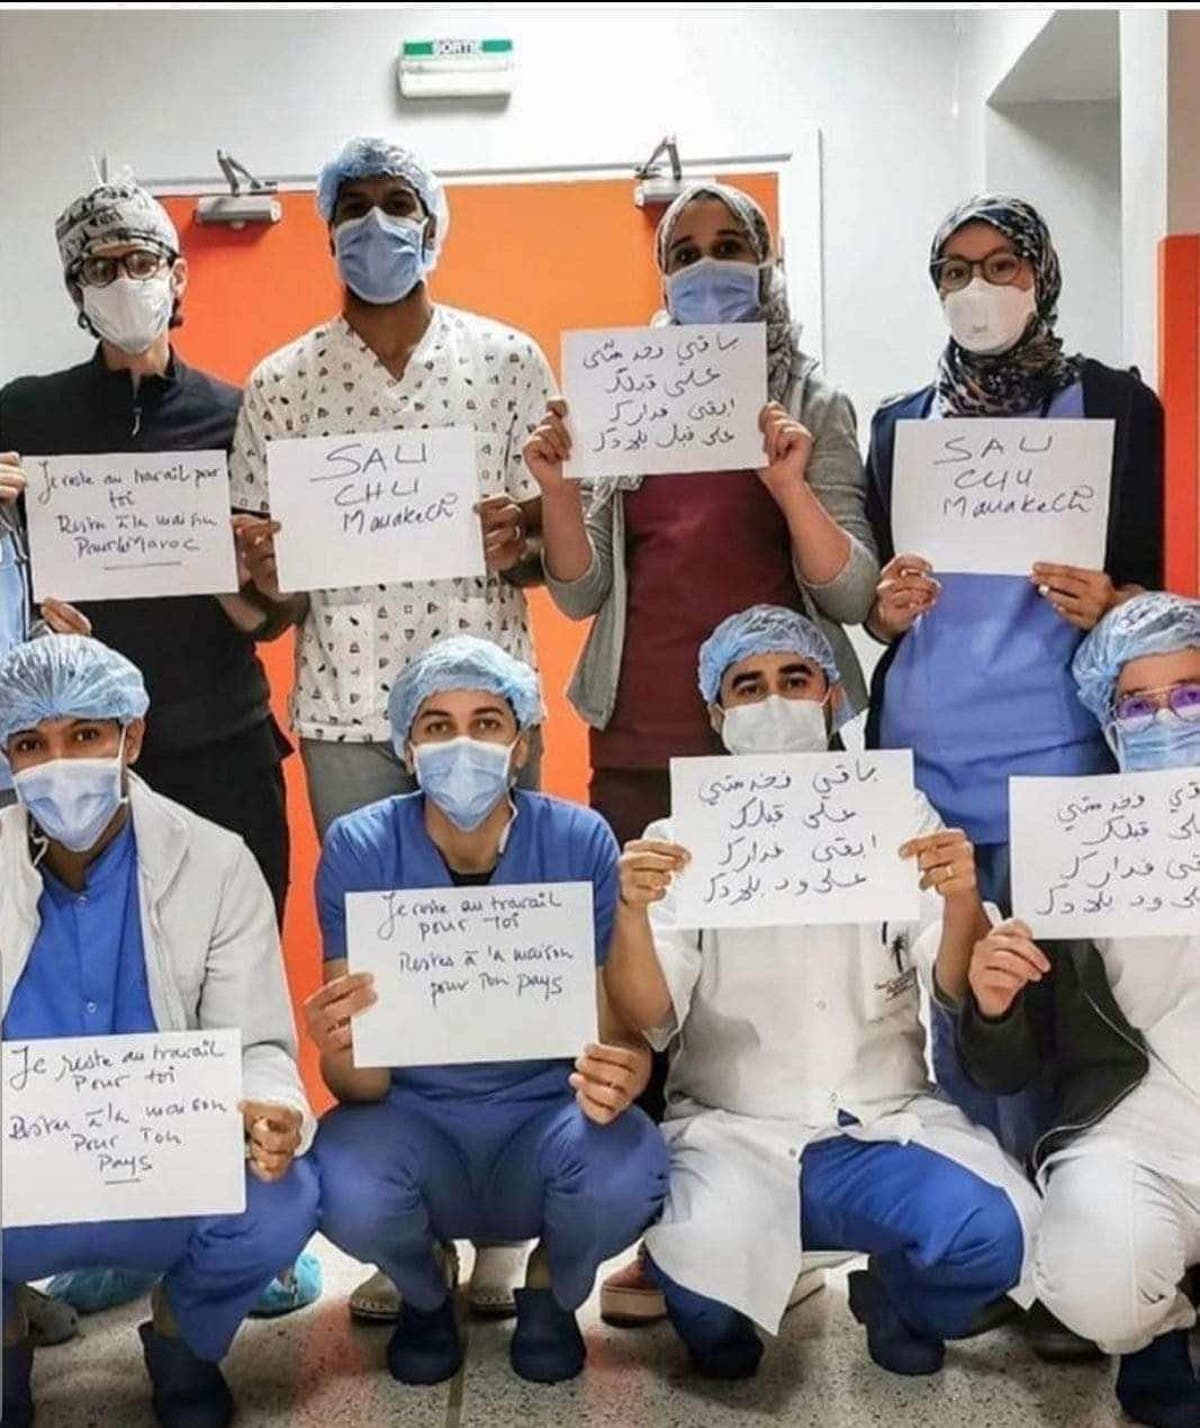 SORTIE
Je reste au travail pour
toi
Rester à la maison
Pour le Maroc
SAU
CHU
Marrakech
باقي فخدمتي
على قبلك
ابقى فدارك
على قبل بلادك
SAU
CHU
Marrakech
Je reste au travail
pour toi
Rester à la maison
Pour Ton
Pays
Je reste au travail
pour toi
Restes à la maison
pour Ton pays
باقي فخدمتي
على قبلك
ابقى فدارك
على ود بلادك
فخدمتي
قبلك
فدارك
ود بلادك